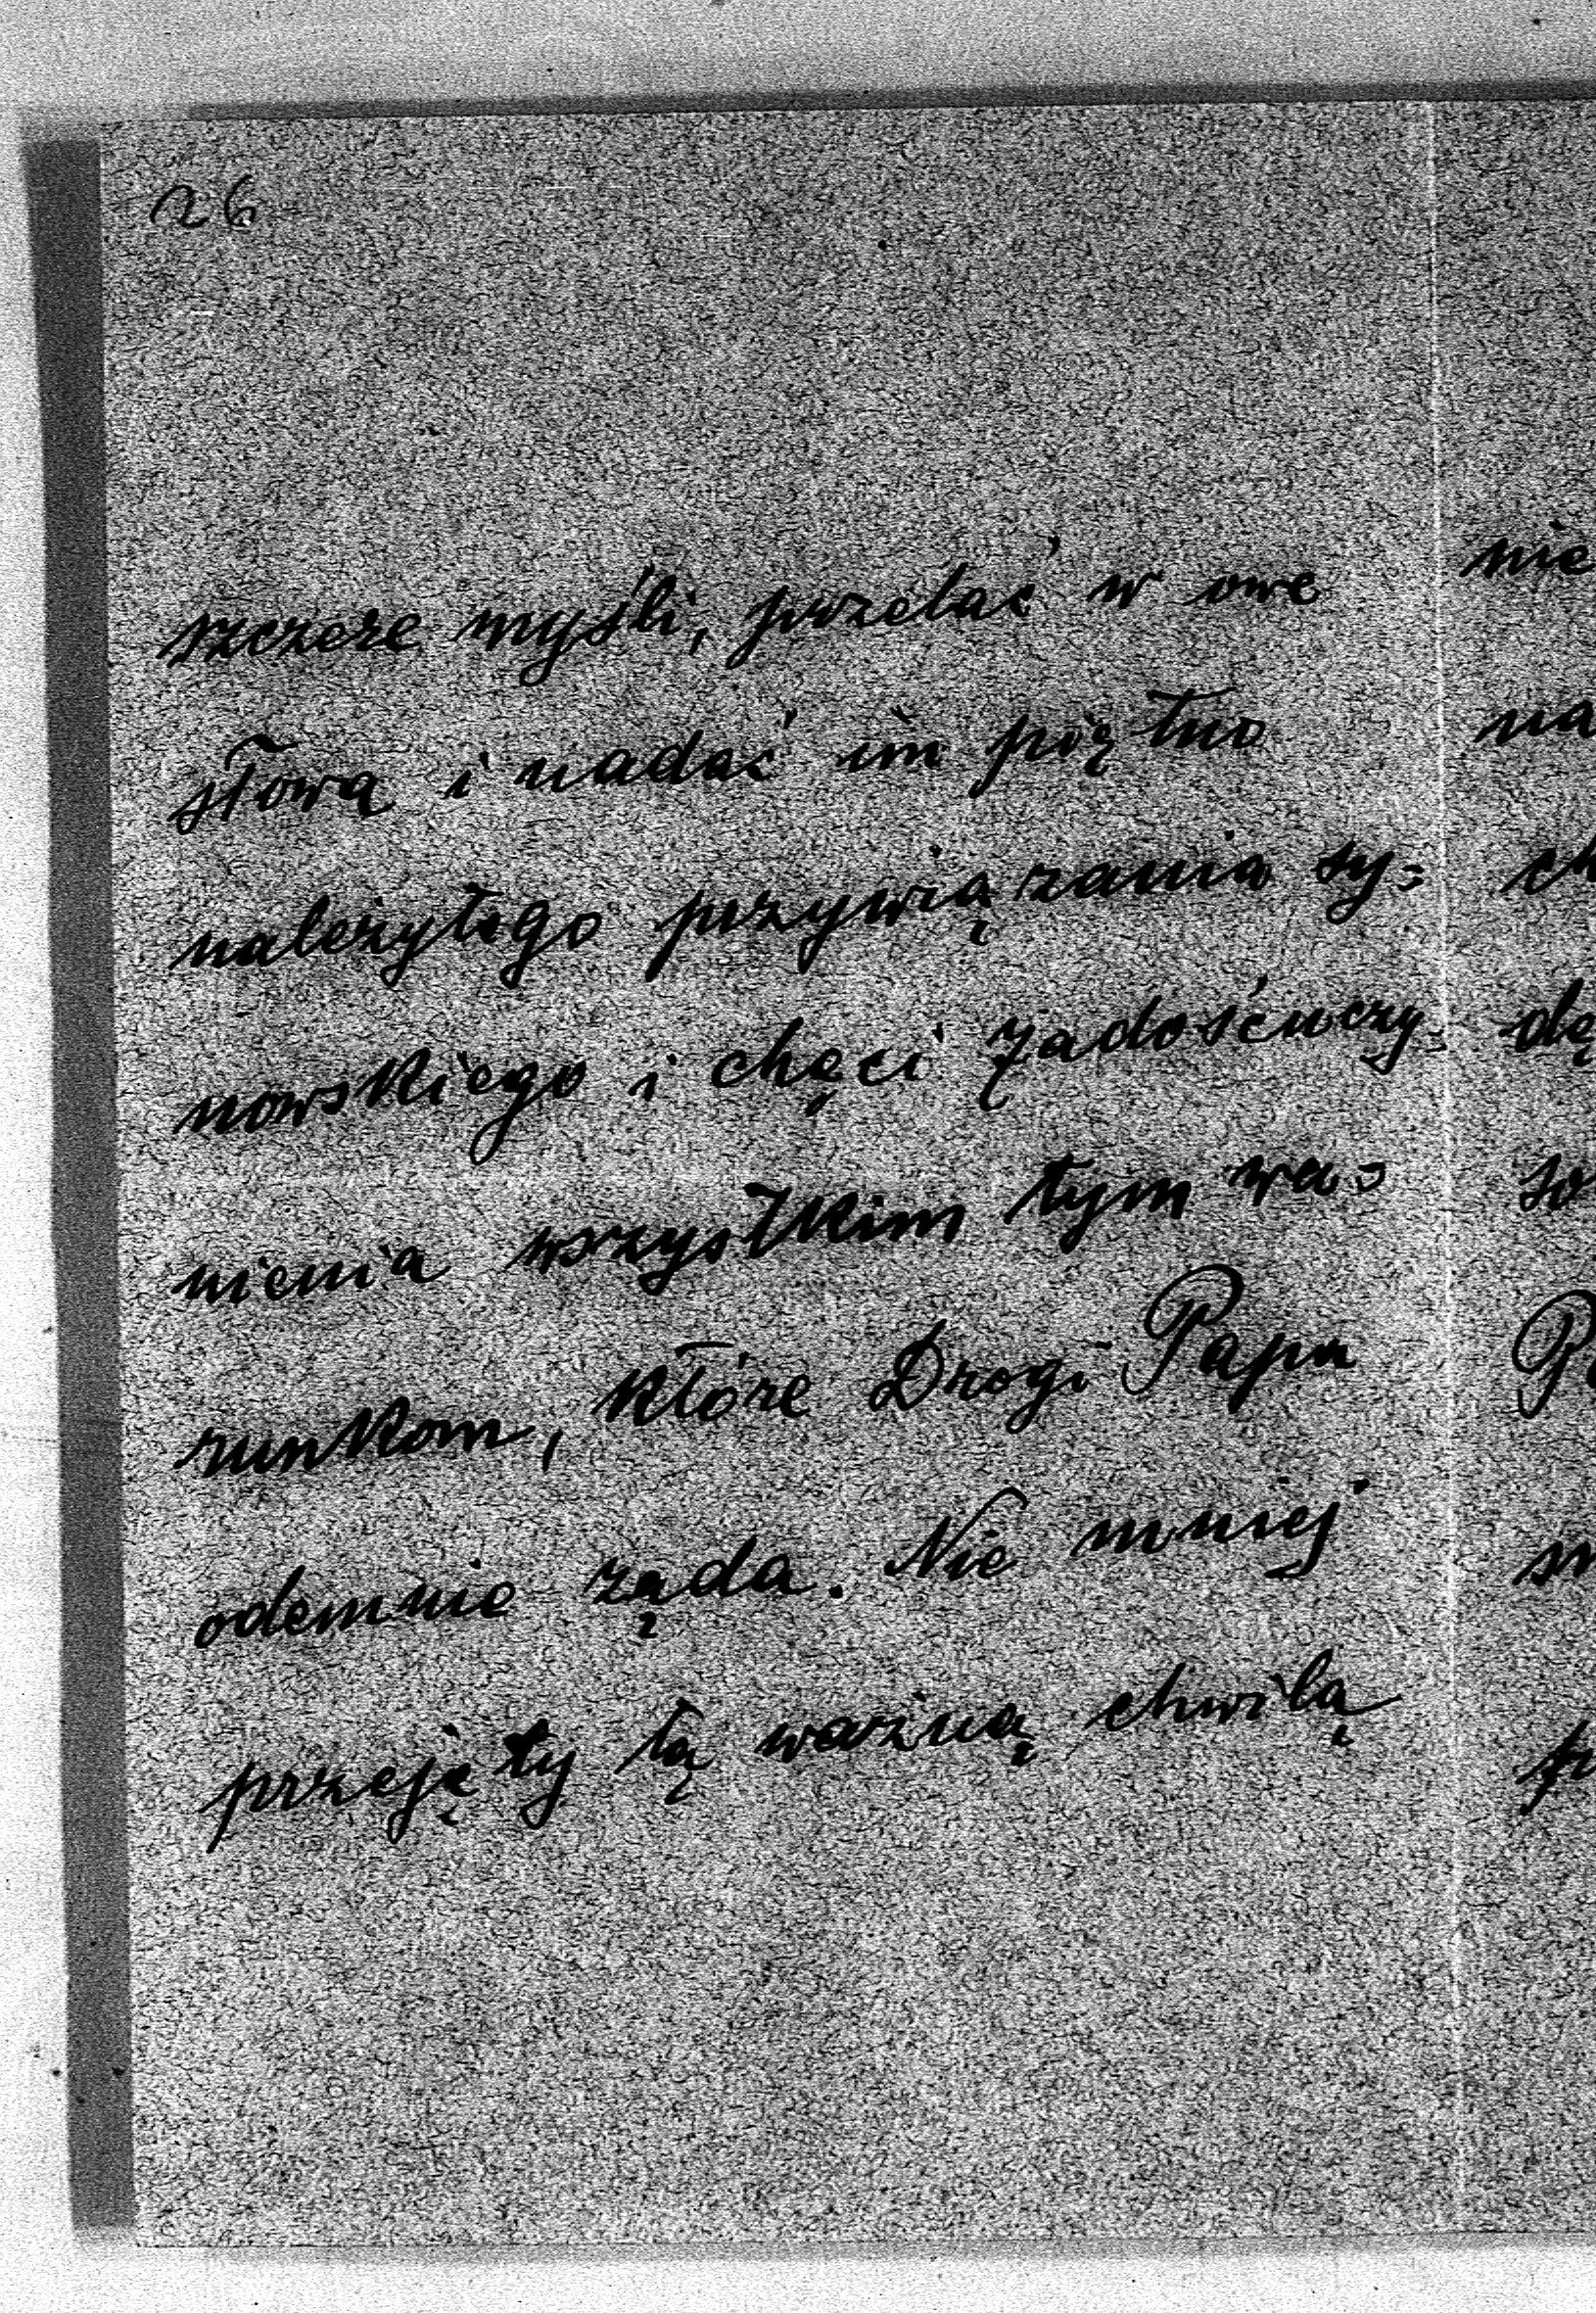 26
szczere myśli, przelać w owe
słowa i nadać im piętno
należytego przywiązania sy=
nowskiego i chęci zadośćuczy=
nienia wszystkim tym wa=
runkom, które Drogi Papa
odemnie żąda. Nie mniej
przejęty tą ważną chwilą
nie
na